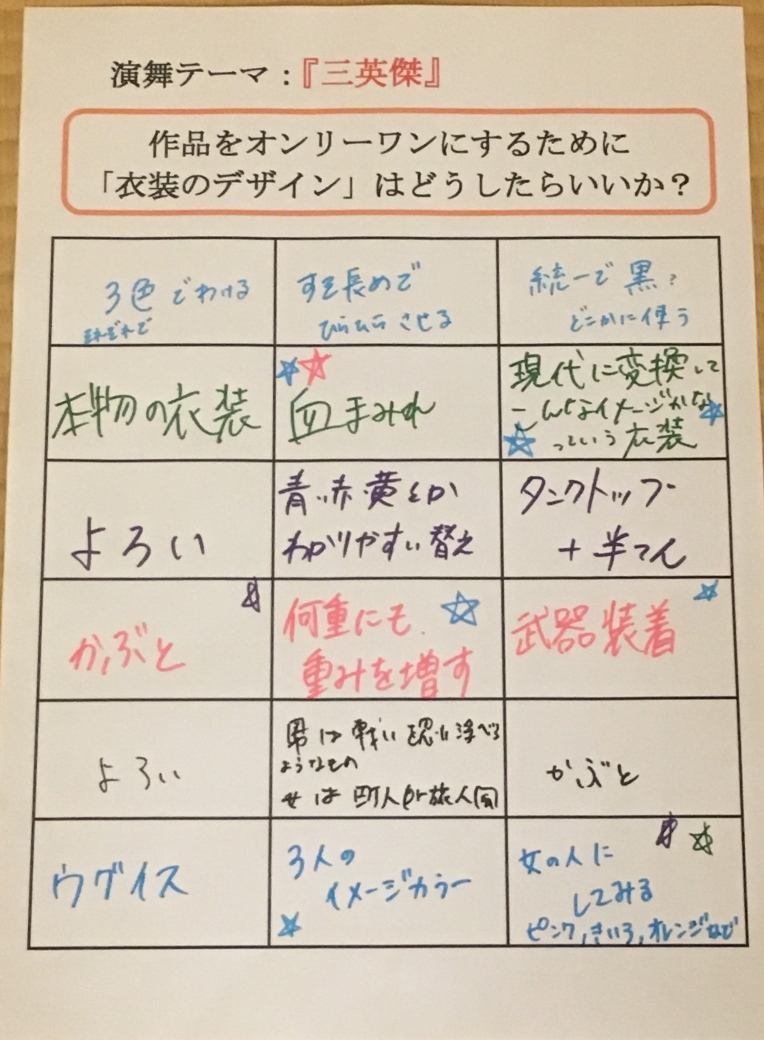 演舞テーマ：『三英傑』
作品をオンリーワンにするために
「衣装のデザイン」はどうしたらいいか？
3色でわける
それぞれで
すそ長めで
ひらひらさせる
統一で黒？
どこかに使う
本物の衣装
血まみれ
現代に変換して
こんなイメージかな
っていう衣装
よろい
青、赤、黄とか
わかりやすい替え
タンクトップ
＋半てん
かぶと
何重にも
重みを増す
武器装着
よろい
男は戦い思い浮べる
ようなもの
女は町人or旅人風
かぶと
ウグイス
3人の
イメージカラー
女の人に
してみる
ピンク,きいろ,オレンジなど